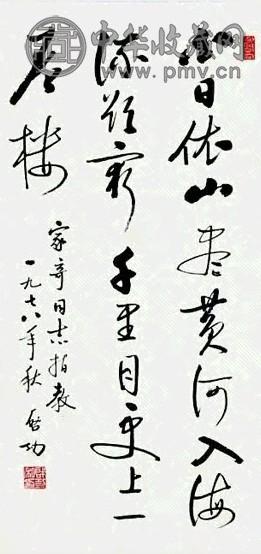 中华收藏网
www.pmv.cn
白日依山尽黄河入海
流欲穷千里目更上一
层楼
家奇同志指教
一九七八年秋 启功